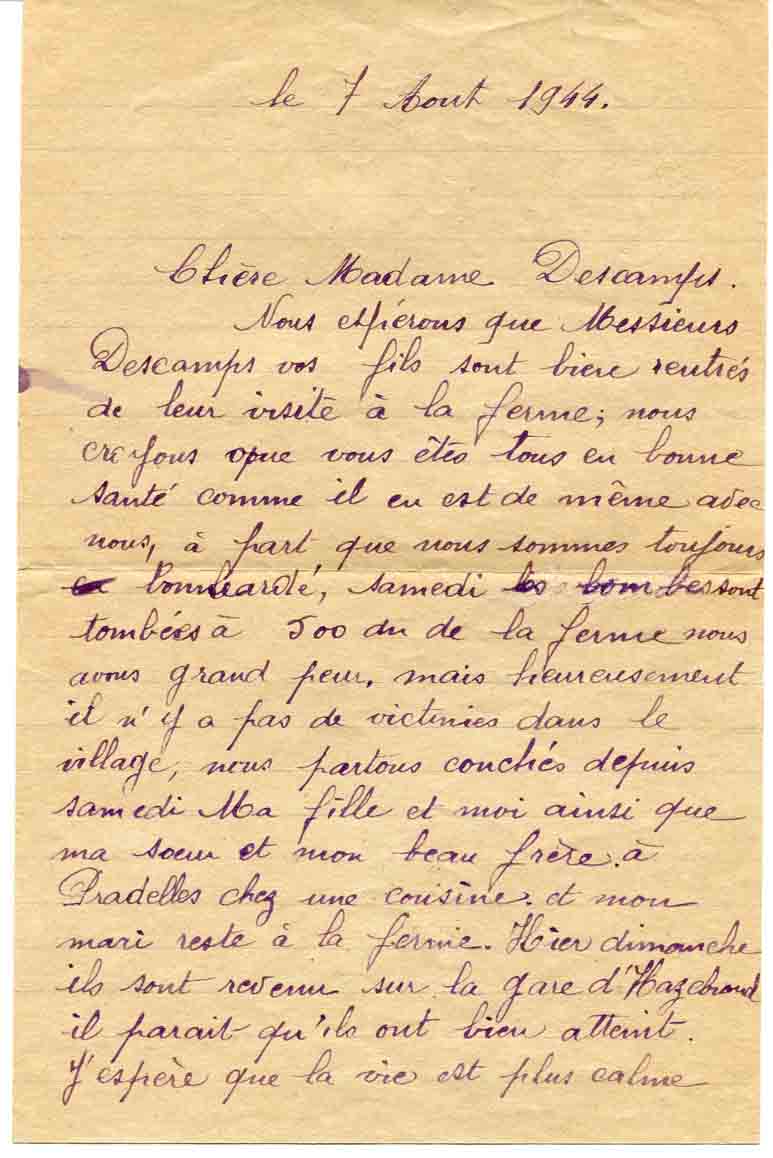 le 7 Aout 1944.
Chère Madame Descamps.
Nous espérons que Messieurs
Descamps vos fils sont bien rentrés
de leur visite à la ferme; nous
croyons que vous êtes tous en bonne
santé comme il en est de même avec
nous, à part que nous sommes toujours
bombardé, samedi les bombes sont
tombées à 500 du de la ferme nous
avons grand peur, mais heureusement
il n'y a pas de victimes dans le
village, nous partons couchés depuis
samedi Ma fille et moi ainsi que
ma soeur et mon beau frère. à
Pradelles chez une cousine. et mon
mari reste à la ferme. Hier dimanche
ils sont revenu sur la gare d'Hazebrouck
il parait qu'ils ont bien atteint.
J'espère que la vie est plus calme